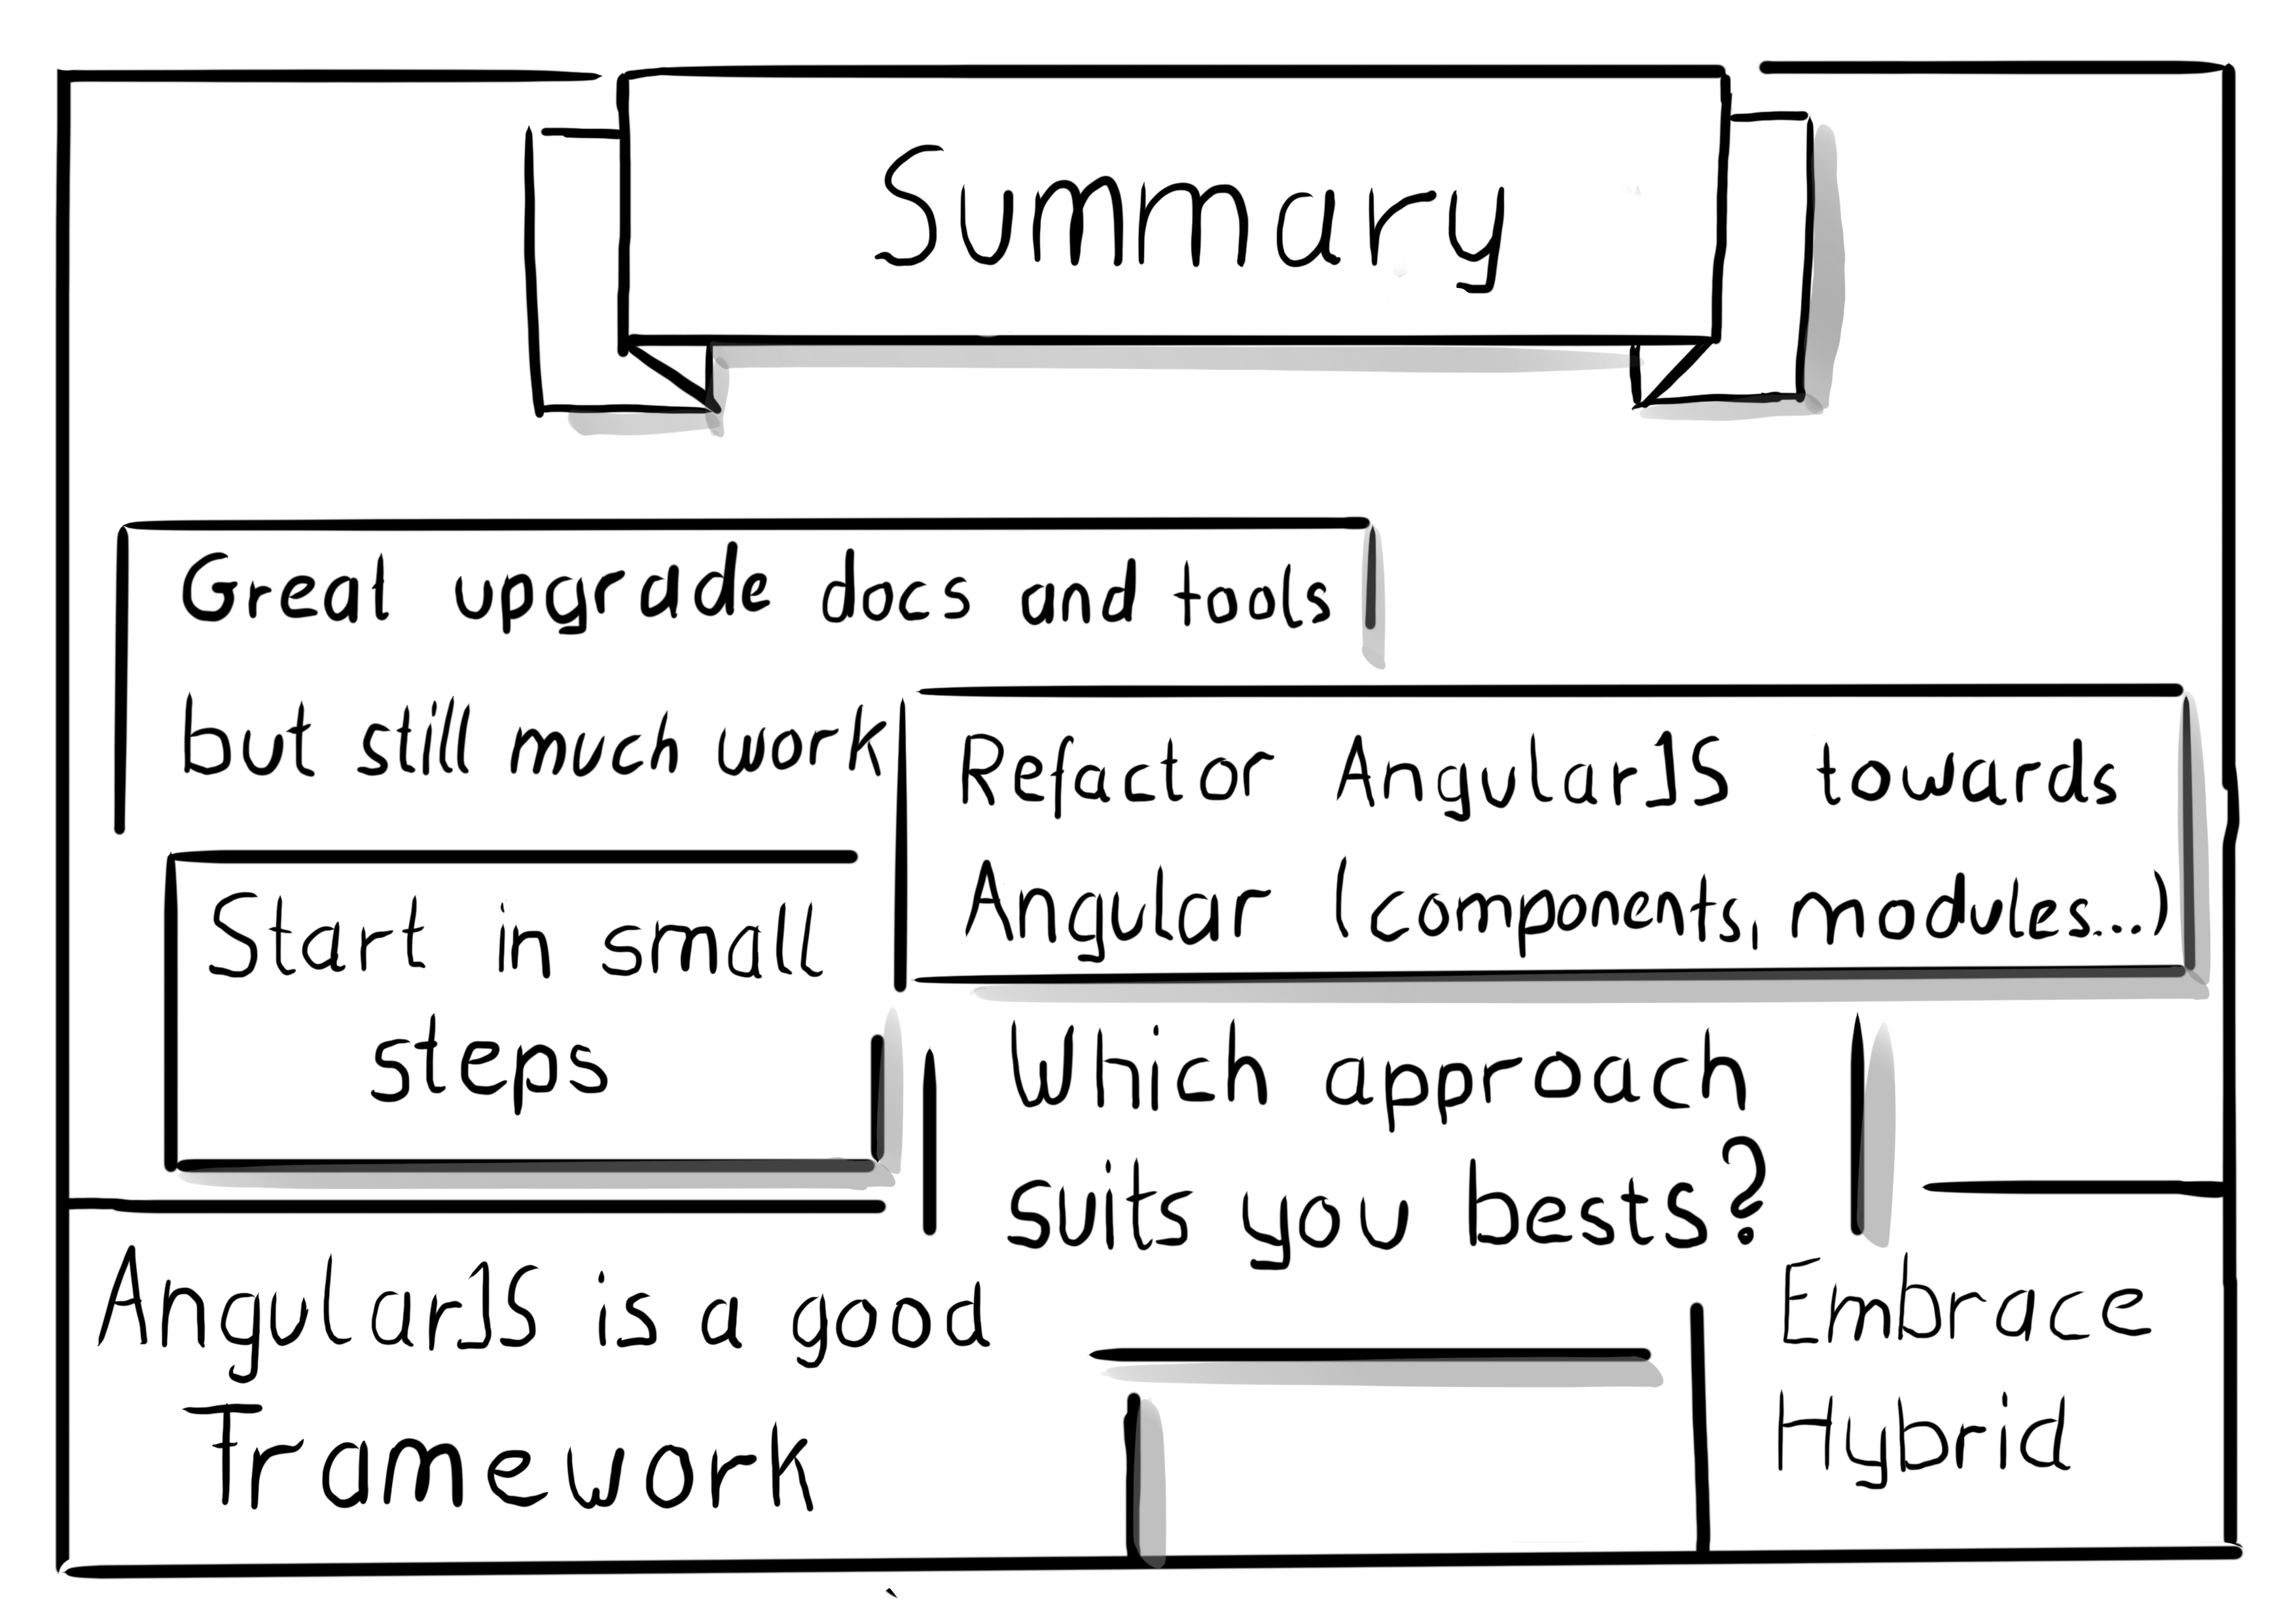 Summary
Great upgrade docs and tools
but still much work
Refactor AngularJS towards
Angular (components, modules...)
Start in small
steps
Which approach
suits you bests?
AngularJS is a good
Framework
Embrace
Hybrid